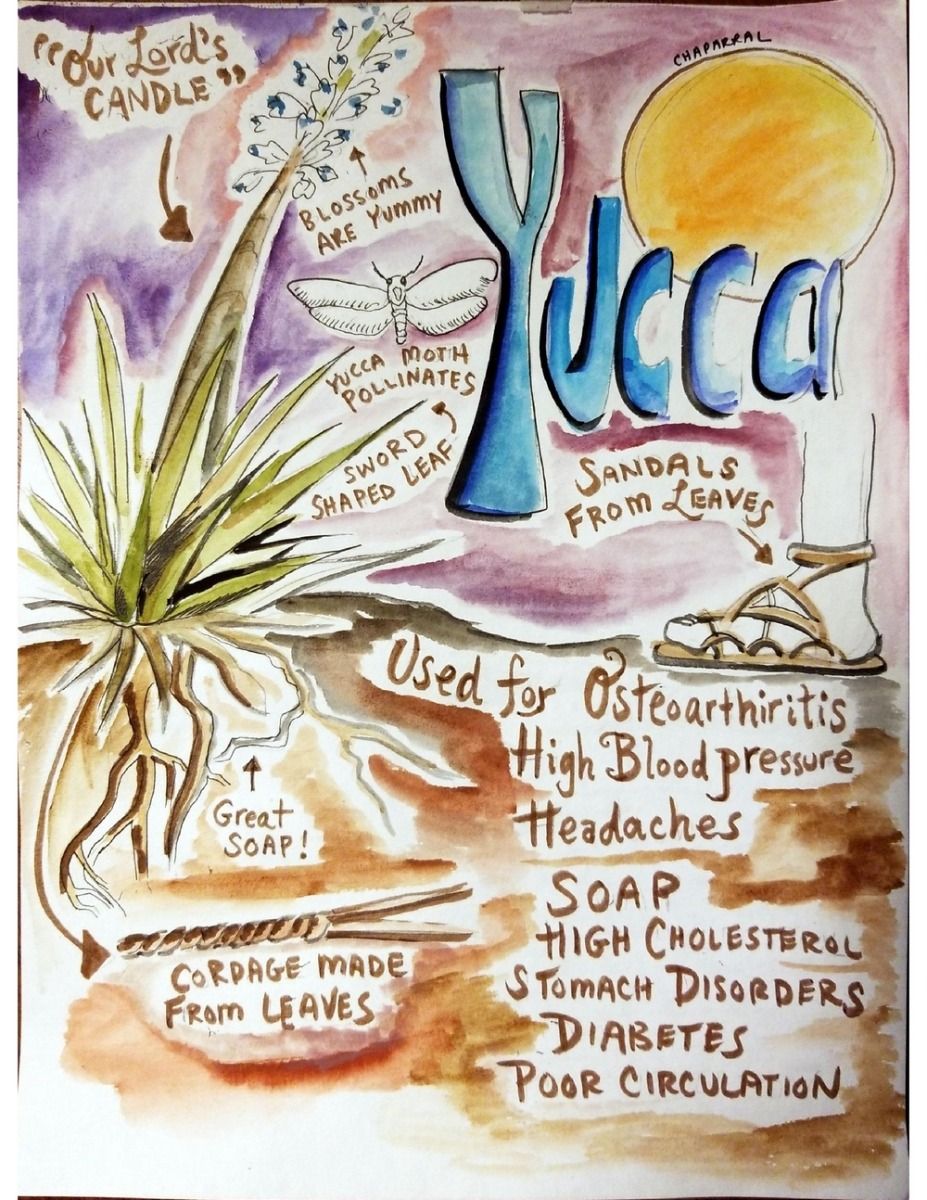 "Our Lord's
CANDLE"
BLOSSOMS
ARE Yummy
CHAPARRAL
Yucca
YUCCA MOTH
POLLINATES
SWORD
SHAPED LEAF
SANDALS
FROM LEAVES
Used for Osteoarthiritis
High Blood pressure
Headaches
Great
SOAP!
SOAP
HIGH CHOLESTEROL
STOMACH DISORDERS
DIABETES
POOR CIRCULATION
CORDAGE MADE
FROM LEAVES